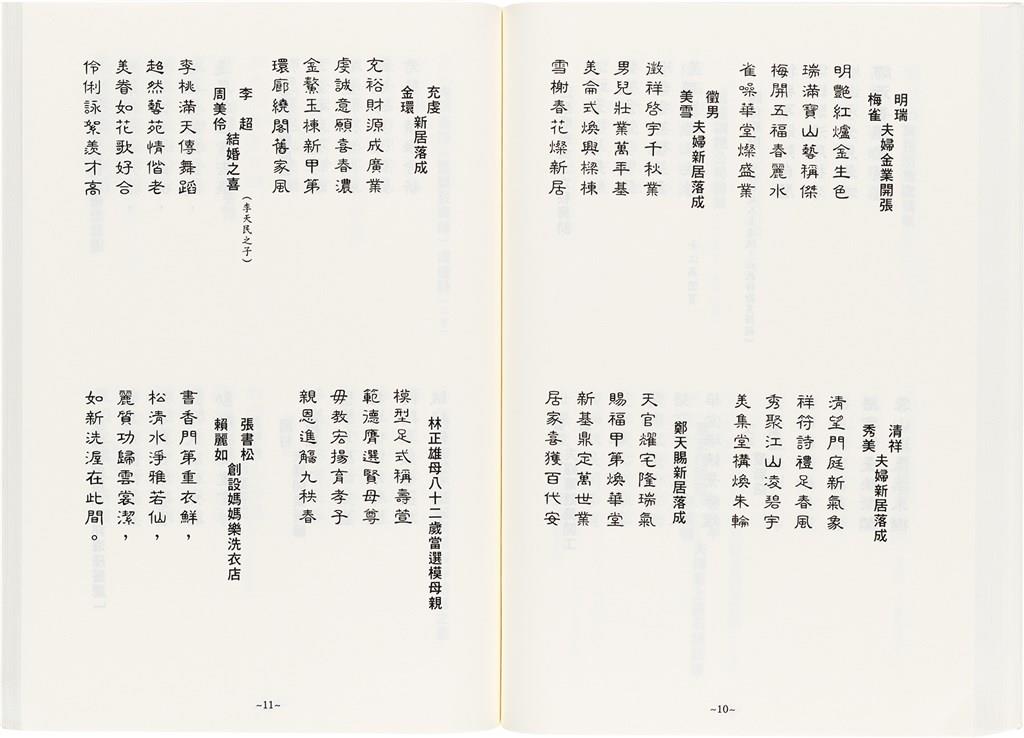 明瑞
梅雀
夫婦金業開張
明艷紅爐金生色
瑞滿寶山藝稱傑
梅開五福春麗水
雀噪華堂燦盛業
徵男
美雪
夫婦新居落成
徵祥啓宇千秋業
男兒壯業萬年基
美侖式煥興樑棟
雪榭春花燦新居
清祥
秀美
夫婦新居落成
清望門庭新氣象
祥符詩禮足春風
秀聚江山凌碧宇
美集堂構煥朱輪
鄭天賜新居落成
天官耀宅隆瑞氣
賜福甲第煥華堂
新基鼎定萬世業
居家喜獲百代安
~10~
充虔
金環
新居落成
充裕財源成廣業
虔誠意願喜春濃
金鰲玉棟新甲第
環廊繞閣舊家風
李超
周美伶
結婚之喜
(李天民之子)
李桃滿天傳舞蹈
超然藝苑情偕老
美眷如花歌好合
伶俐詠絮羨才高
林正雄母八十二歲當選模母親
模型足式稱壽萱
範德膺選賢母尊
母教宏揚育孝子
親恩進觴九秩春
張書松
賴麗如
創設媽媽樂洗衣店
書香門第重衣鮮，
松清水淨雅若仙，
麗質功歸雲裳潔，
如新洗渥在此間。
~11~